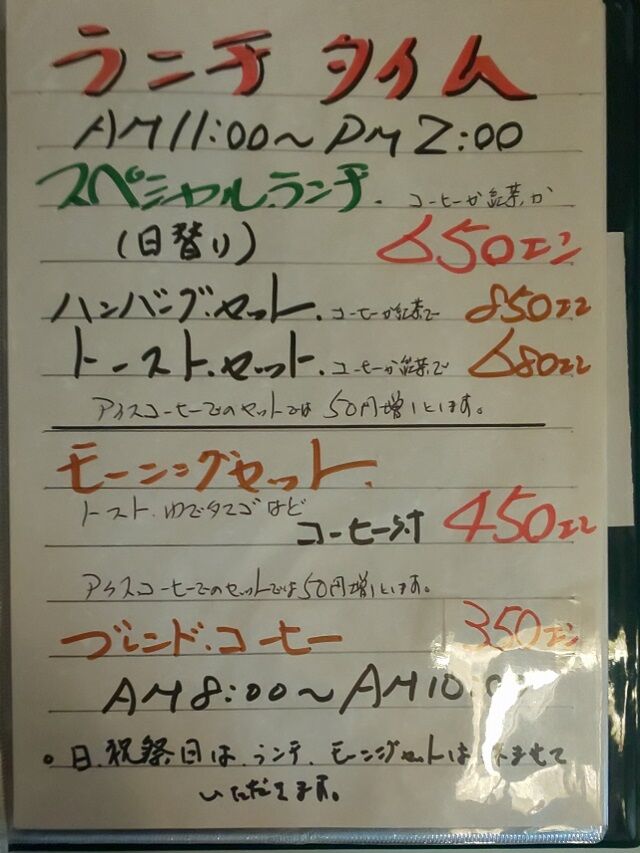 ランチタイム
AM11:00～PM2:00
スペシャル.ランチ. コーヒーか紅茶か
(日替り) 650エン
ハンバーグ.セット. コーヒーか紅茶で 850エン
トースト.セット. コーヒーか紅茶で 680エン
アイスコーヒーでのセットでは50円増しとします。
モーニングセット.
トースト.ゆでタマゴほど
コーヒー付 450エン
アイスコーヒーでのセットでは50円増しとします。
ブレンド.コーヒー 350エン
AM8:00～AM10:
。日.祝祭日は.ランチ.モーニングセットは ませて
いただきます。